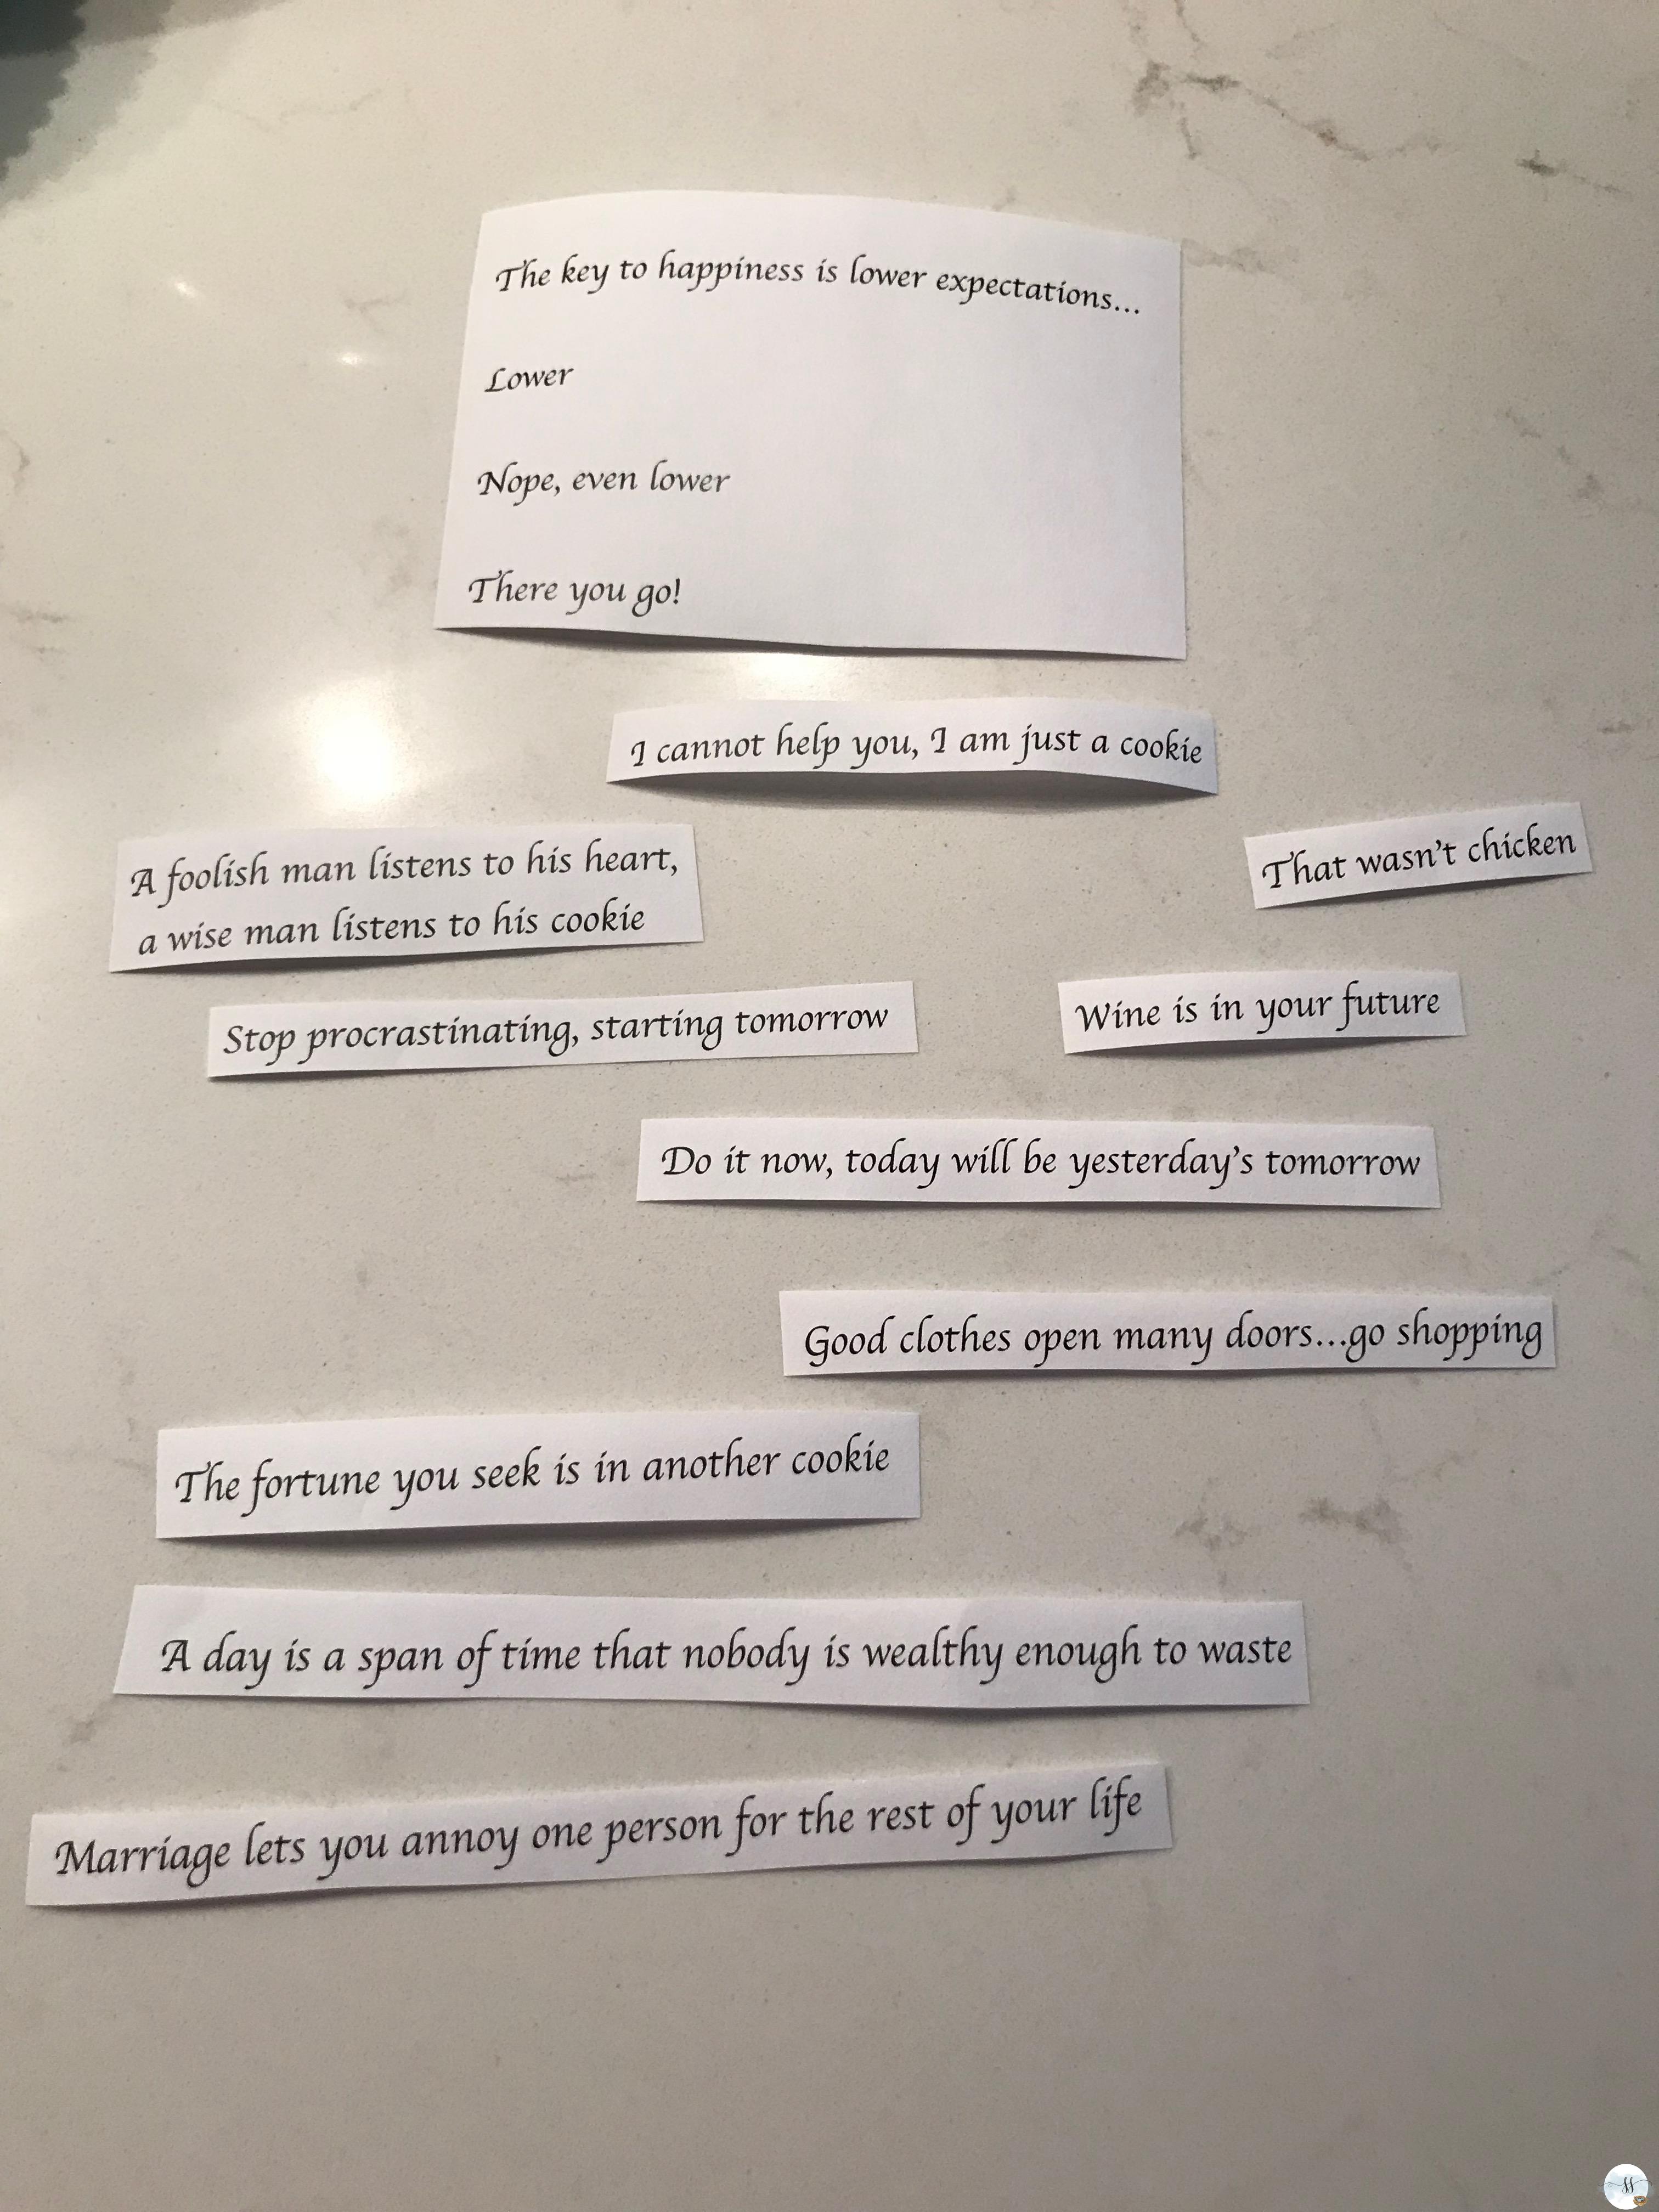 The key to happiness is lower expectations...
Lower
Nope, even lower
There you go!
I cannot help you, I am just a cookie
A foolish man listens to his heart,
a wise man listens to his cookie
That wasn't chicken
Stop procrastinating, starting tomorrow
Wine is in your future
Do it now, today will be yesterday's tomorrow
Good clothes open many doors...go shopping
The fortune you seek is in another cookie
A day is a span of time that nobody is wealthy enough to waste
Marriage lets you annoy one person for the rest of your life